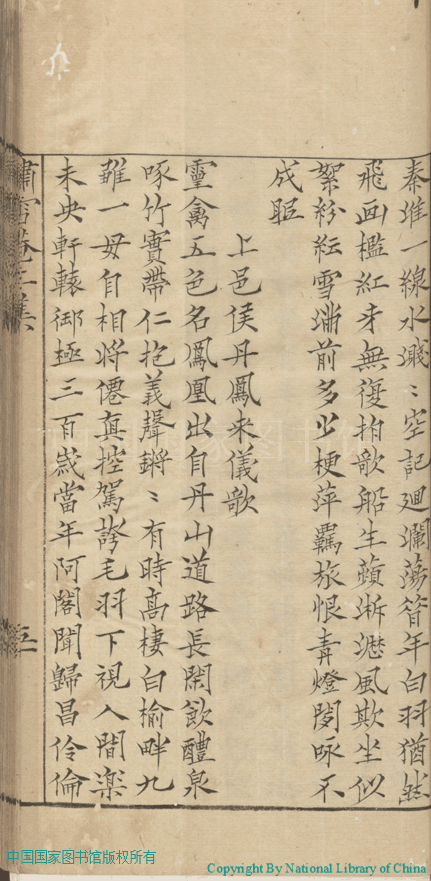 秦淮一線水濺〻空記迴瀾蕩昔年白羽猶然
飛画檻紅牙無復拍歌船生蘋淅瀝風欺坐似
絮紛紜雪滿前多少梗萍羈旅恨青燈閱咏不
成眠
上邑侯丹鳳來儀歌
靈禽五色名鳳凰出自丹山道路長閑飲醴泉
啄竹實帶仁抱義聲鏘〻有時高棲白榆畔九
雖一母自相將僊真控駕誇毛羽下視人間楽
未央軒轅御極三百歲當年阿閣聞歸昌伶倫
中国国家图书馆版权所有
Copyright By National Library of China